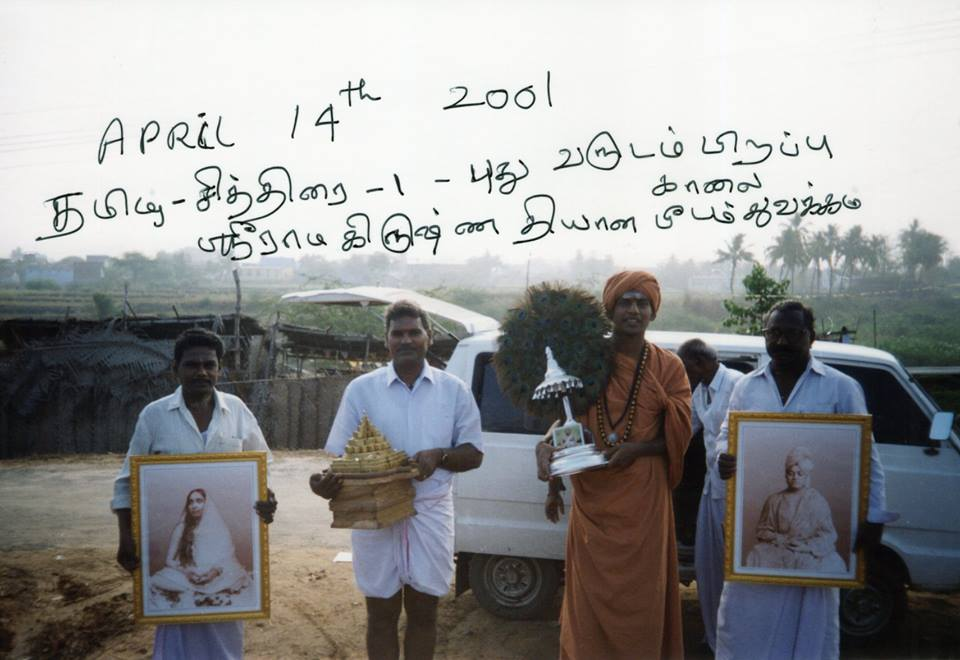 APRIL 14th 2001
தமிழ் - சித்திரை - 1 - புது வருடம் பிறப்பு
காலை
ஸ்ரீராம கிருஷ்ண தியான துவக்கம்